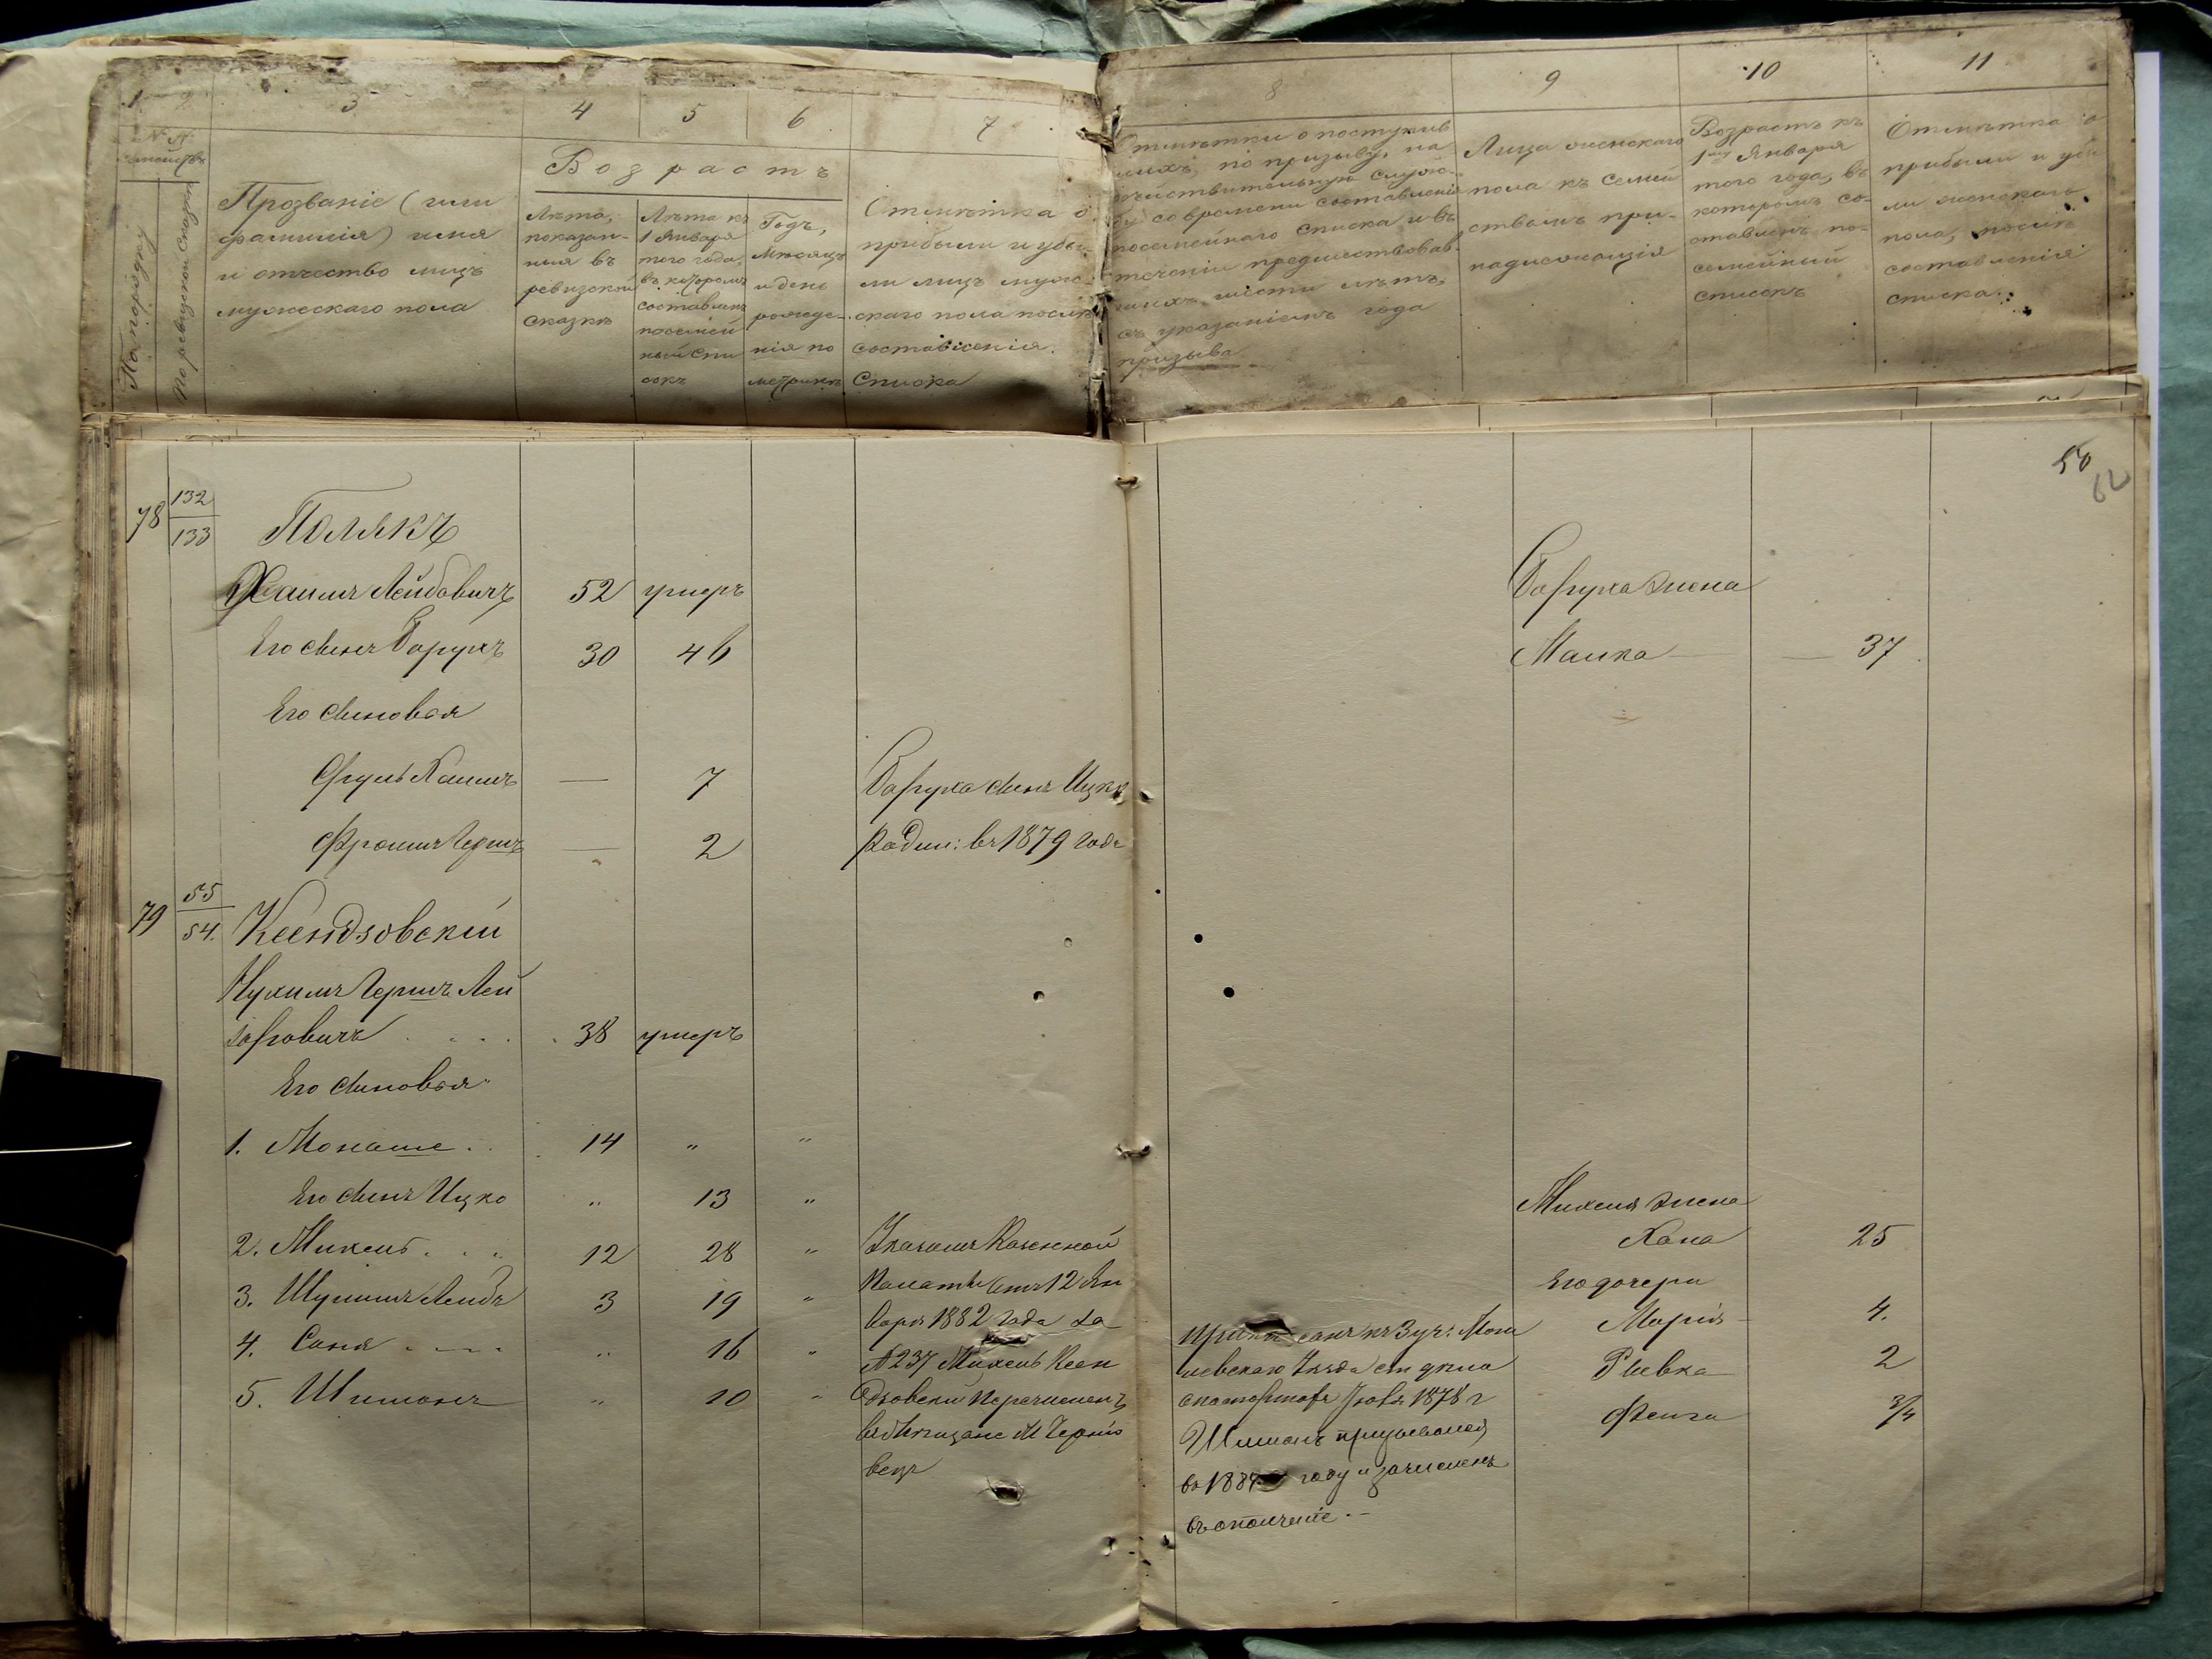 1 2 3 4 5 6 7 8 9 10 11
№ №
семействъ
По порядку
По ревизской сказкѣ
Прозваніе (или
фамилія) имя
и отчество лицъ
мужескаго пола
Возрастъ
Лѣта,
показан-
ныя въ
ревизской
сказкѣ
Лѣта къ
1 Января
того года,
въ которомъ
составленъ
посемей
ный спи
сокъ
Годъ,
мѣсяцъ
и день
рожде-
нія по
метрикѣ
Отмѣтка о
прибыли и убы-
ли лицъ муже-
скаго пола послѣ
составленія
списка
Отмѣтки о поступив
шихъ, по призыву, на
дѣйствительную служ-
бу со времени составленія
посемейнаго списка и въ
теченіи предшествовав
шихъ шести лѣтъ,
съ указаніемъ года
призыва
Лица женскаго
пола къ семей
ствамъ при-
надлежащія
Возрастъ къ
1му Января
того года, въ
которомъ со-
ставленъ по-
семейный
списокъ
Отмѣтка о
прибыли и убы
ли женскаго
пола, послѣ
составленія
списка
50
62
78 132
133
Полякъ
Хаимъ Лейбовичъ 52 умеръ Баруха жена
Его сынъ Барухъ 30 46 Малка — — 37
Его сыновья
Сруль Хаимъ — 7 Баруха сынъ Ицко
Фроимъ Гершъ — 2 родил: въ 1879 годѣ
79 55
54.
Ксендзовскій
Нухимъ Гершъ Лей
зоровичъ 38 умеръ
Его сыновья
1. Монаше 14 „ „
Его сынъ Ицко „ 13 „ Михеля жена
2. Михель 12 28 „ Указомъ Казенной Хана 25
3. Шулимъ Лейбъ 3 19 „ Палаты отъ 12 Ян Его дочери
4. Саня „ 16 „ варя 1882 года за приписанъ къ 3 уч: Моги Марія 4.
5. Шимонъ „ 10 „ № 237 Михель Ксен левскаго уѣзда Ривка 2
дзовскій перечисленъ 1878 г Фейга 3/4
въ мѣщане М Чернио Шимонъ призывался
вецъ въ 1884 году и зачисленъ
въ ополченіе.—